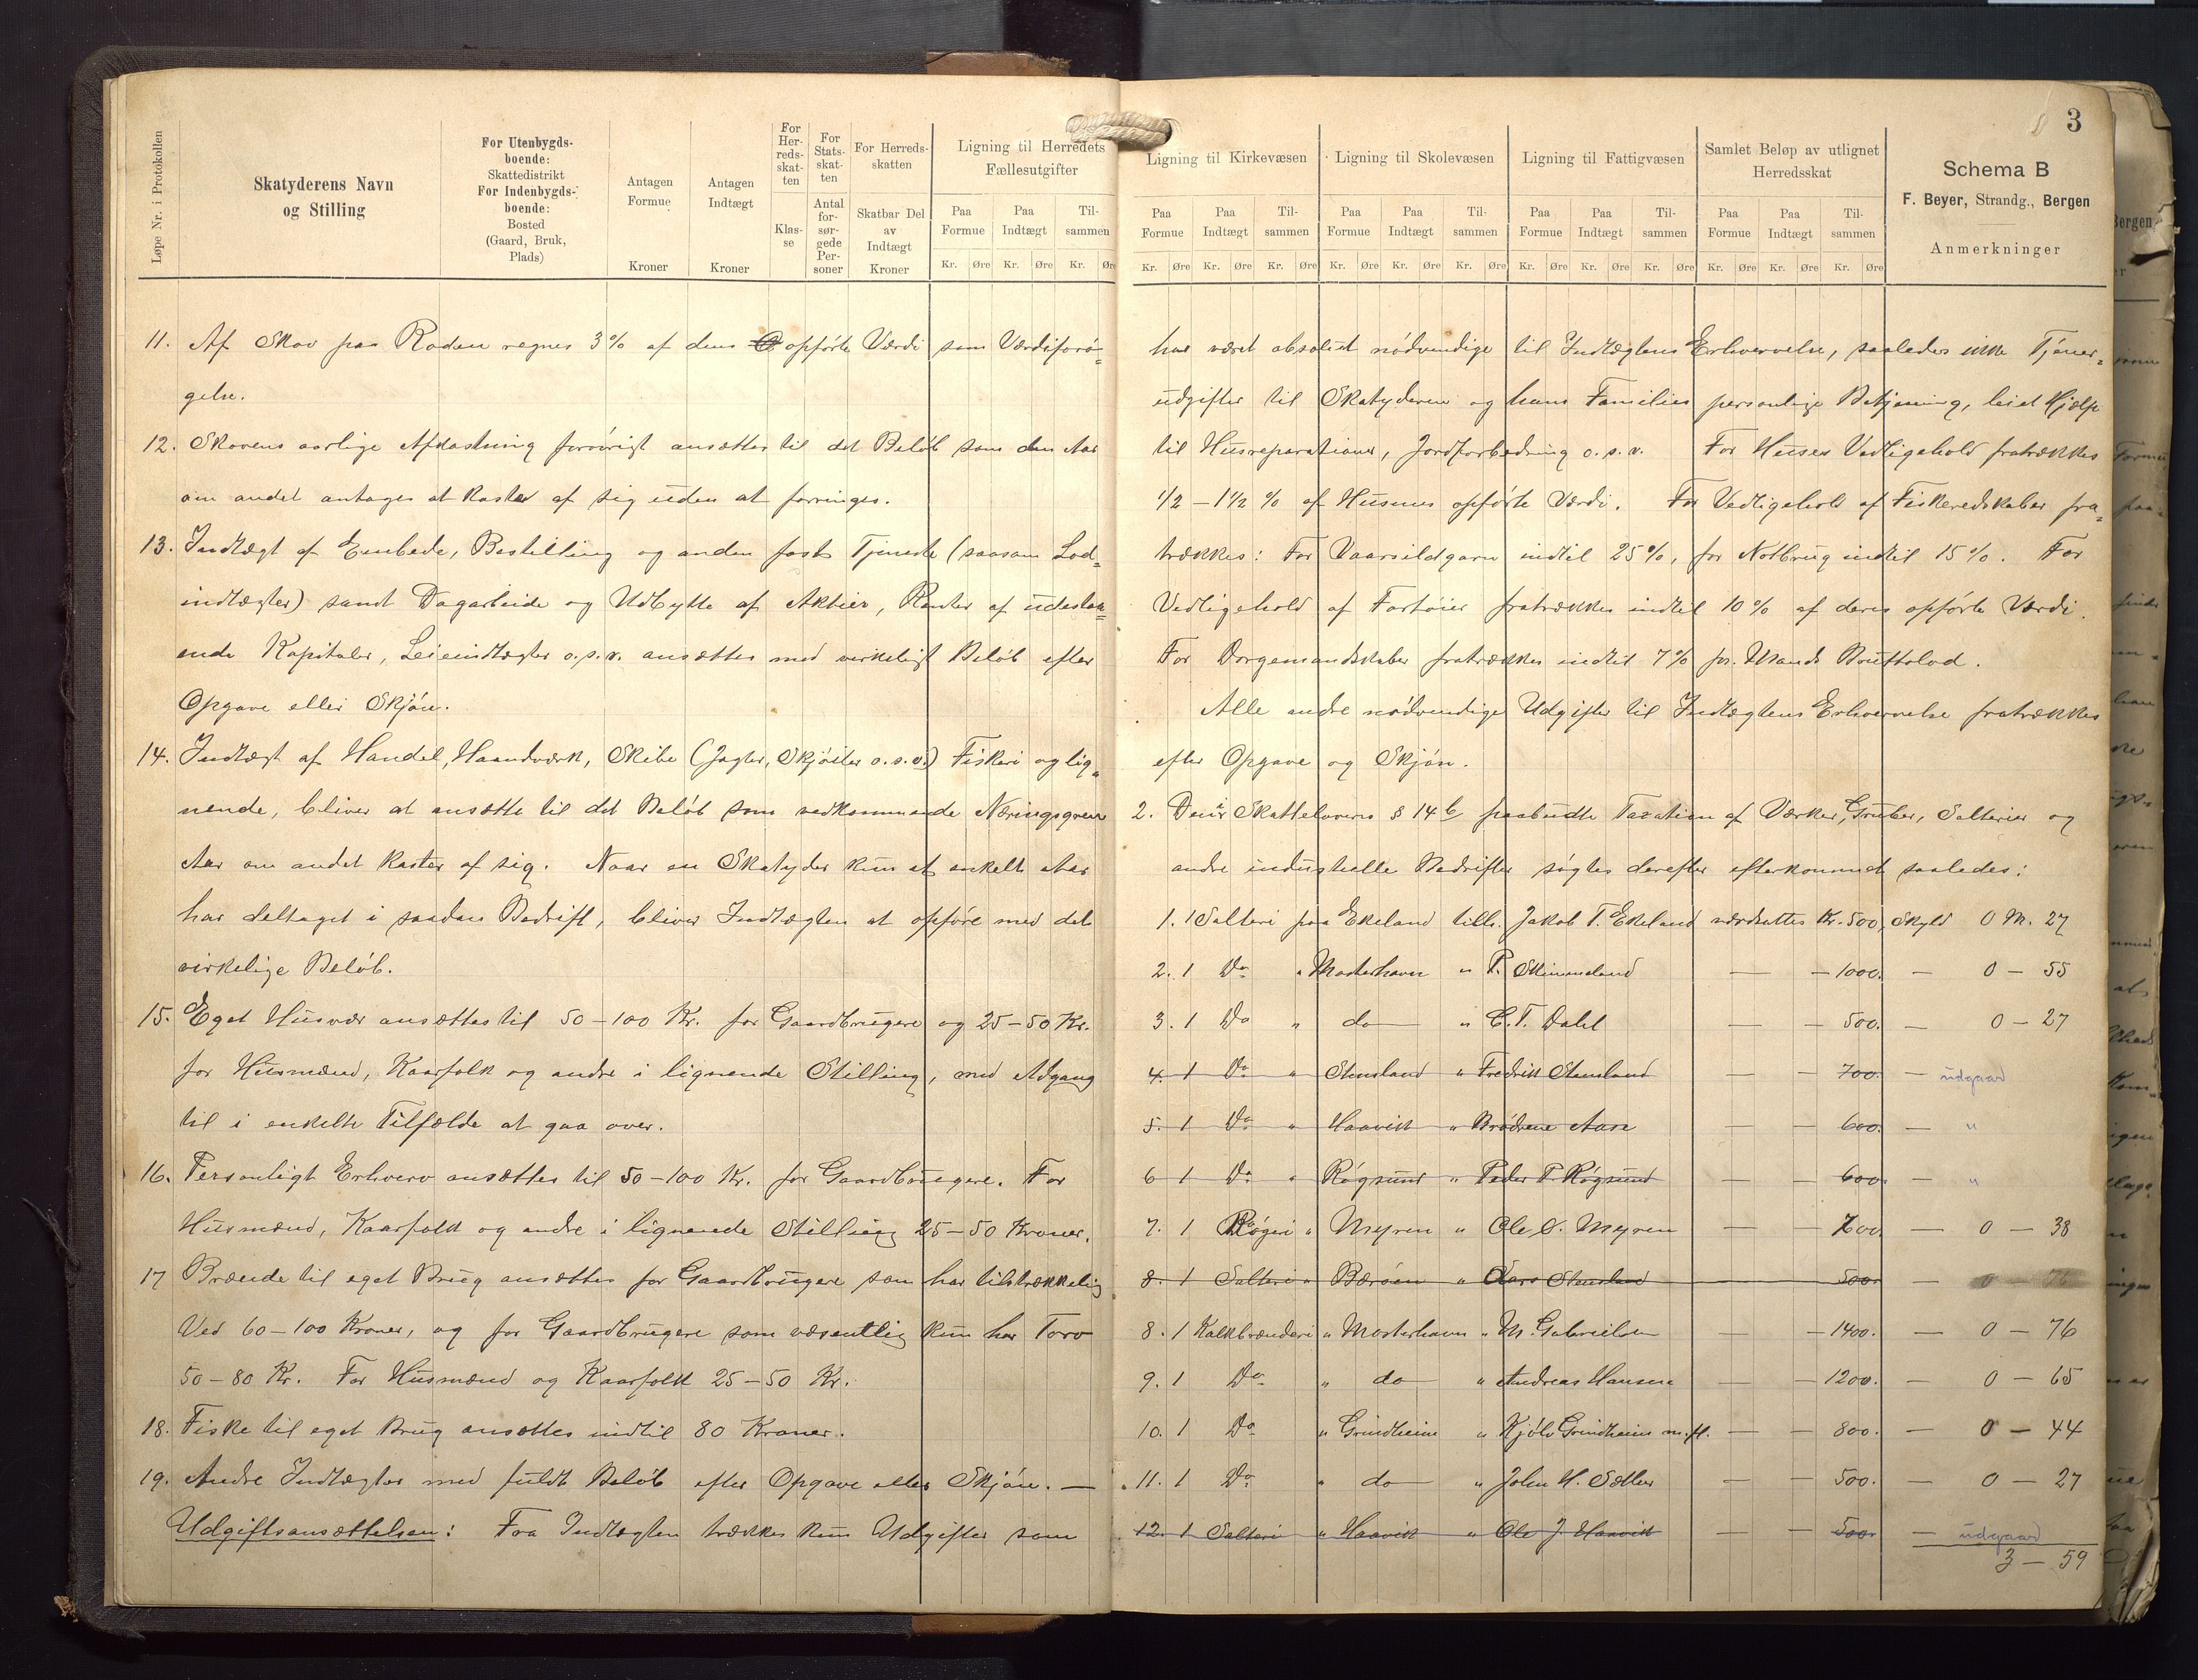 Løpe Nr. i Protokollen
Skatyderens Navn
og Stilling
For Utenbygds-
boende:
Skattedistrikt
For Indenbygds-
boende:
Bosted
(Gaard, Bruk,
Plads)
Antagen
Formue
Kroner
Antagen
Indtægt
Kroner
For
Her-
reds-
skat-
ten
Klas-
se
For
Stats-
skat-
ten
Antal
for-
sør-
gede
Per-
soner
For Herreds-
skatten
Skatbar Del
av
Indtægt
Kroner
Ligning til Herredets
Fællesutgifter
Paa
Formue
Paa
Indtægt
Til-
sammen
Kr. Øre Kr. Øre Kr. Øre
11. Af Skov paa Roden regnes 3% af dens opførte Værdi som Værdiforø=
gelse.
12. Skovens aarlige Afkastning forøvrigt ansættes til det Beløb som den Aar
om andet antages at kaster af sig uden at forringes.
13. Indtægt af Embede, Bestilling og anden fast Tjeneste (saasom Lod=
indtægter) samt Dagarbeide og Udbytte af Aktier, Renter af udestaa=
ende Kapitaler, Leieindtægter o.s.v. ansættes med virkeligt Beløb efter
Opgave eller Skjøn.
14. Indtægt af Handel, Haandværk, Skibe (Jagter, Skjøiter o.s.v.) Fiskeri og lig=
nende, bliver at ansætte til det Beløb som vedkommende Næringsgren
Aar om andet kaster af sig. Naar en Skatyder kun et enkelt Aar
har deltaget i saadan Bedrift, bliver Indtægten at opføre med det
virkelige Beløb.
15. Eget Husvær ansættes til 50-100 Kr. for Gaardbrugere og 25-50 Kr.
for Husmænd, Kaarfolk og andre i lignende Stilling, med Adgang
til i enkelte Tilfælde at gaa over.
16. Personligt Erhverv ansættes til 50-100 Kr. for Gaardbrugere. For
Husmænd, Kaarfolk og andre i lignende Stilling 25-50 Kroner.
17 Brænde til eget Brug ansættes for Gaardbrugere som har tilstrækkelig
Ved 60-100 Kroner, og for Gaardbrugere som væsentlig kun har Torv
50-80 Kr. For Husmænd og Kaarfolk 25-50 Kr.
18. Fiske til eget Brug ansættes indtil 80 Kroner.
19. Andre Indtægter med fuldt Beløb efter Opgave eller Skjøn. —
Udgiftsansættelsen: Fra Indtægten trækkes kun Udgifter som
3
Ligning til Kirkevæsen
Paa
Formue
Paa
Indtægt
Til-
sammen
Kr. Øre Kr. Øre Kr. Øre
Ligning til Skolevæsen
Paa
Formue
Paa
Indtægt
Til-
sammen
Kr. Øre Kr. Øre Kr. Øre
Ligning til Fattigvæsen
Paa
Formue
Paa
Indtægt
Til-
sammen
Kr. Øre Kr. Øre Kr. Øre
Samlet Beløp av utlignet
Herredsskat
Paa
Formue
Paa
Indtægt
Til-
sammen
Kr. Øre Kr. Øre Kr. Øre
Schema B
F. Beyer, Strandg., Bergen
Anmerkninger
har været absolut nødvendige til Indtægtens Erhvervelse, saaledes ikke Tjener=
udgifter til Skatyderen og hans Families personlige Betjening, leiet Hjælp
til Husreparationer, Jordforbedring o.s.v. For Huses Vedligehold fratrækkes
1/2 - 1 1/2 % af Husenes opførte Værdi. For Vedligehold af Fiskeredskaber fra=
trækkes: For Vaarsildgarn indtil 25%, for Notbrug indtil 15%. For
Vedligehold af Fartøier fratrækkes indtil 10% af deres opførte Værdi.
For Dorgemandskaber fratrækkes indtil 7% pr. Mands Bruttolod.
Alle andre nødvendige Udgifter til Indtægtens Erhvervelse fratrækkes
efter Opgave og Skjøn.
2. Den i Skattelovens § 14 b paabudte Taxation af Værker, Gruber, Salterier og
andre industrielle Bedrifter søgtes derefter efterkommet saaledes:
1. 1 Salteri paa Ekeland tillh. Jakob T. Ekeland værdsattes Kr. 500, Skyld 0 M. 27
2. 1 Do " Mosterhavn " P. Skimmeland — — 1000. — 0 - 55
3. 1 Do " do " C. T. Dahl — — 500. — 0 - 27
4. 1 Do " Stensland " Fredrik Stensland — — 700. — udgaar
5. 1 Do " Haavik " Brødrene Aase — — 600. — "
6 1 Do " Røgsund " Peder P. Røgsund — — 600. — "
7. 1 Røgeri " Myren " Ole O. Myren — — 700. — 0 - 38
8. 1 Salteri " Børøen " Lars Stensland 500. — 0 - 76
8. 1 Kalkbrænderi " Mosterhavn " M. Gabrielsen — — 1400. — 0 - 76
9. 1 Do " do " Andreas Hansen — — 1200. — 0 - 65
10. 1 Do " Grindheim " Kjølv Grindheim m.fl. — — 800. — 0 - 44
11. 1 Do " do " John H. Sætter — — 500. — 0 - 27
12. 1 Salteri " Haavik " Ole J. Haavik — — 500. — udgaar
3 - 59